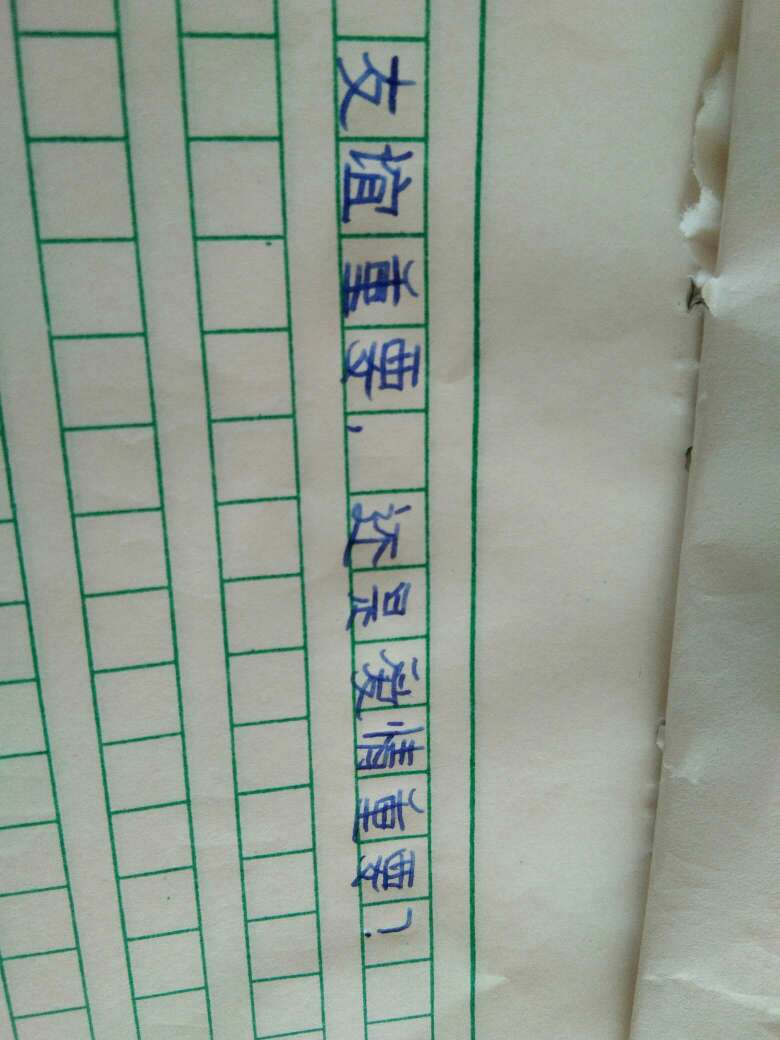 友谊重要，还是爱情重要？